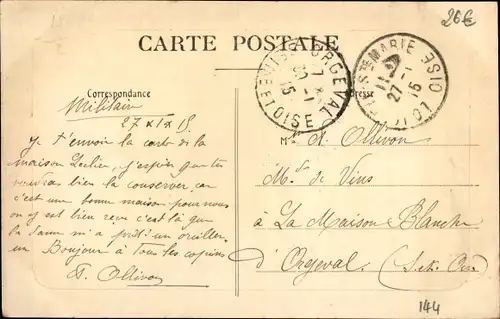 26€
CARTE POSTALE
Correspondance
Militaire
27 x I x 15
ORGEVAL
SEINE ET OISE
7 *
30 -1
15
STE MARIE
OISE
11
27 -1
15
Je t'envoie la carte de la
maison j'espère que tu
voudras bien la conserver, car
c'est une bonne maison pour nous
on y est bien reçu c'est là que
la m'a prêté un oreiller
un Bonjour à tous les copains
A. Ollivon
Adresse
Mr A. Ollivon
Md de Vins
à La Maison Blanche
d'Orgeval (S. et Oise)
144